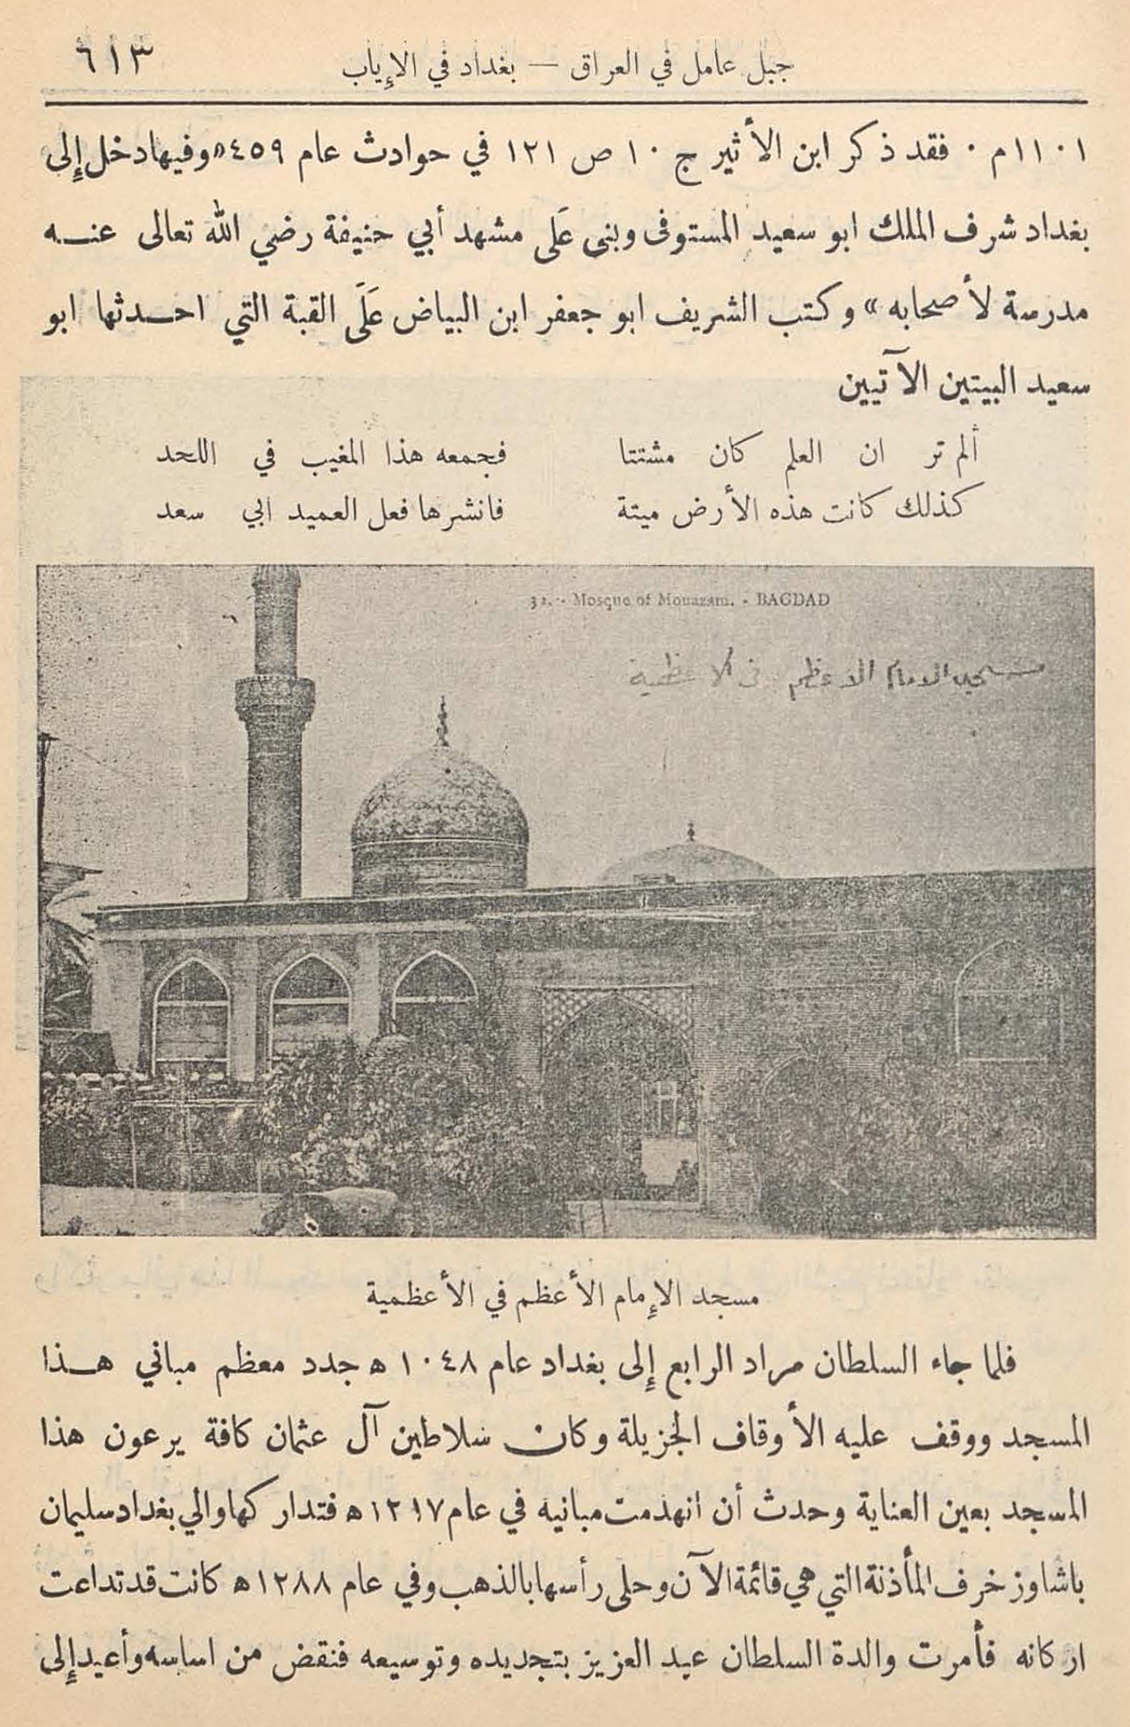 جبل عامل في العراق — بغداد في الإياب ٦١٣
١١٠١م ٠ فقد ذكر ابن الأثير ج ١٠ ص ١٢١ في حوادث عام ٤٥٩ «وفيها دخل إلى
بغداد شرف الملك ابو سعيد المستوفى وبنى عَلى مشهد أبي حنيفة رضي الله تعالى عنه
مدرسة لأصحابه» وكتب الشريف ابو جعفر ابن البياض عَلَى القبة التي احدثها ابو
سعيد البيتين الآتيين
ألم تر ان العلم كان مشتتا فجمعه هذا المغيب في اللحد
كذلك كانت هذه الأرض ميتة فانشرها فعل العميد ابي سعد
32. - Mosque of Mouazam. - BAGDAD
مسجد الامام الاعظم في الاعظمية
مسجد الإمام الأعظم في الأعظمية
فلما جاء السلطان مراد الرابع إلى بغداد عام ١٠٤٨ ه جدد معظم مباني هذا
المسجد ووقف عليه الأوقاف الجزيلة وكان سلاطين آل عثمان كافة يرعون هذا
المسجد بعين العناية وحدث أن انهدمت مبانيه في عام ١٢١٧ ه فتداركها والي بغداد سليمان
باشا وزخرف المأذنة التي هي قائمة الآن وحلى رأسها بالذهب وفي عام ١٢٨٨ ه كانت قد تداعت
اركانه فأمرت والدة السلطان عبد العزيز بتجديده وتوسيعه فنقض من اساسه وأعيد إلى